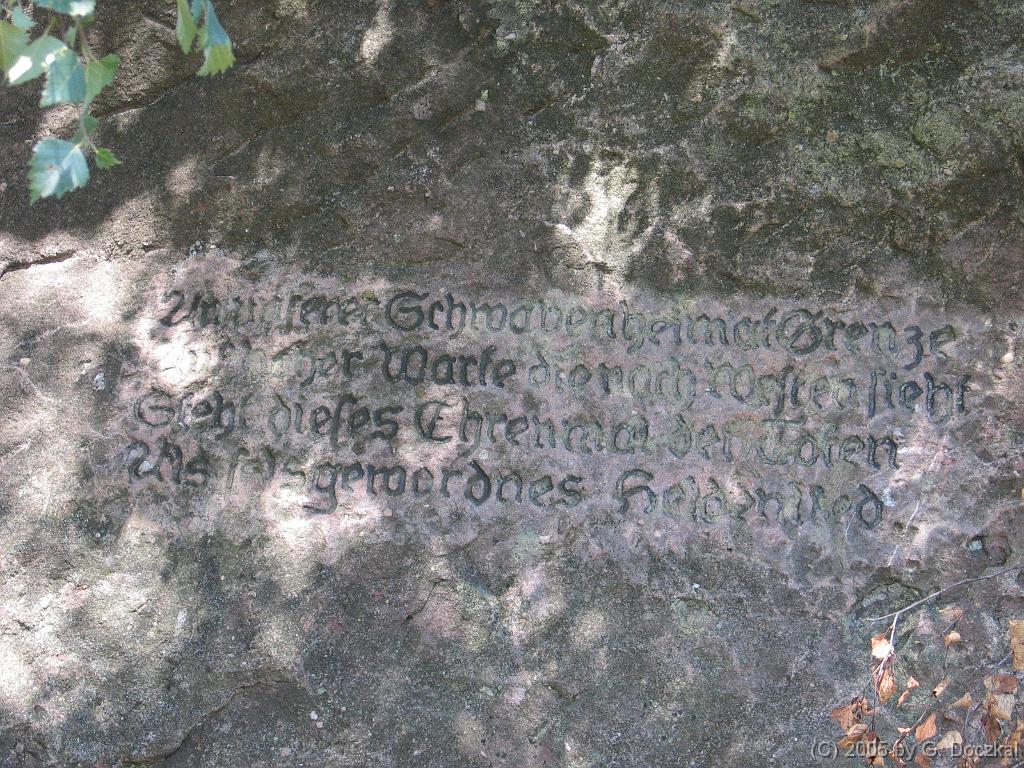 An unserer Schwabenheimat Grenze
Auf hoher Warte die nach Westen sieht
Steht dieses Ehrenmal der Toten
Als felsgewordnes Heldenlied
(C) 2005 by G. Doczkal